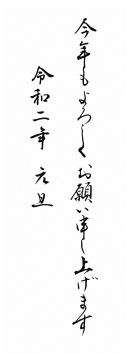 今年もよろしくお願い申し上げます
令和二年 元旦